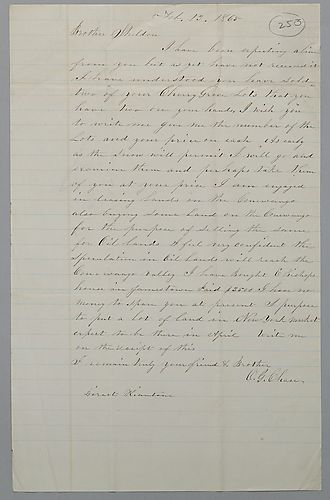 Feb. 12, 1865
253
Brother Sheldon
I have been expecting a line
from you but as yet have not received it
I have understood you have sold
two of your Cherry Grove Lots that you
have two on your hands, I wish you
to write me give me the number of the
Lots and your price on each As early
as the Snow will permit I will go and
examine them and perhaps take them
of you at your price I am engaged
in leasing Lands on the Conewango
also buying some land on the Conewango
for the purpose of selling the same
for Oil lands I feel very confident the
speculation in Oil Lands will reach the
Conewango valley I have bought E Bishops
house in Jamestown Paid $2500 I have no
money to spare you at present I purpose
to put a lot of land in New York market
expect to be there in April Write me
on the receipt of this
I remain truly your friend & Brother
C. G. Chase
Direct Kiantone